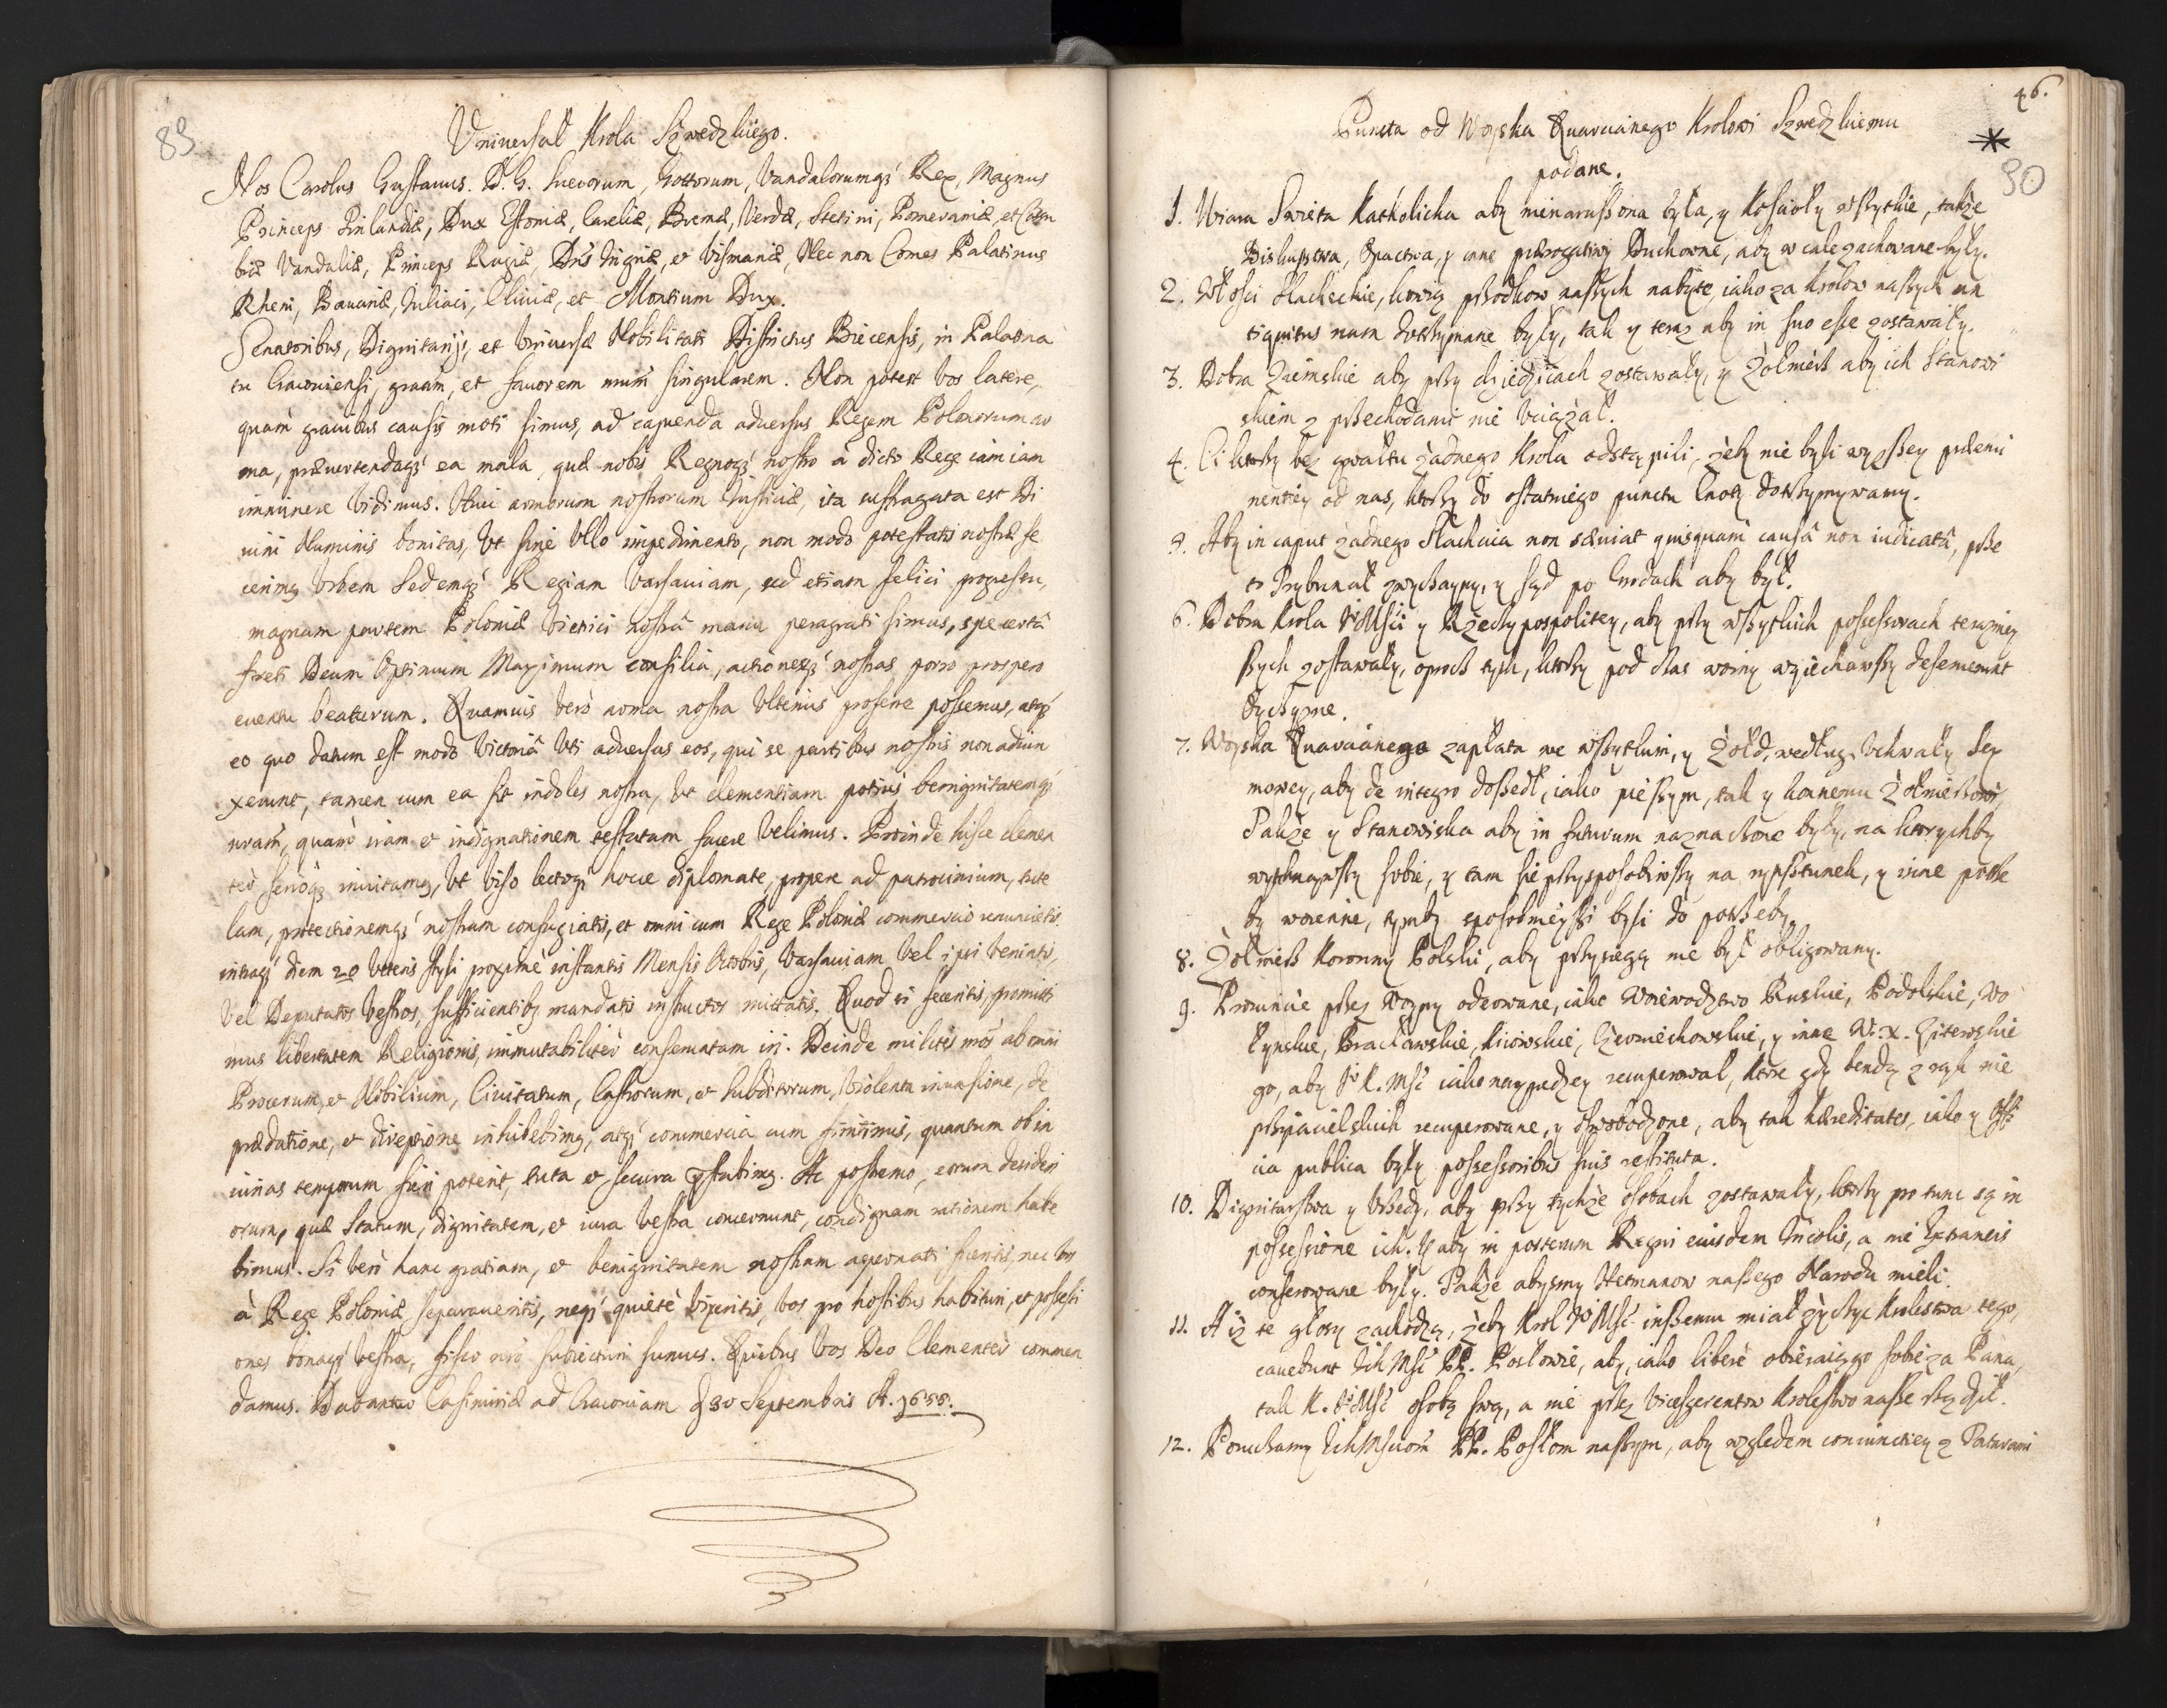 89
Vniuersał Krola Szwedzkiego.
Nos Carolus Gustauus. D. G. Sueuorum, Gottorum, Vandalorumq; Rex, Magnus
Princeps Finlandiæ, Dux Estoniæ, Careliæ, Bremæ, Verdæ, Stetini, Pomeraniæ, et Cassu
biæ Vandaliæ, Princeps Rugiæ, Dns Ingriæ, et Vismariæ, Nec non Comes Palatinus
Rheni, Bauariæ, Iuliaci, Cliuiæ, et Montium Dux.
Senatoribus, Dignitarijs, et Vniuersæ Nobilitati Districtus Biecensis, in Palatina
tu Cracouiensi, gratiam, et fauorem nrum singularem. Non potest Vos latere,
quam grauibus causis moti simus, ad capienda aduersus Regem Polonorum ar
ma, præuertendaq; ea mala, quæ nobis Regnoq; nostro à dicto Rege iam iam
imminere vidimus. Huic armorum nostrorum Iustitiæ, ita suffragata est Di
uini Numinis bonitas, Vt sine Vllo impedimento, non modo potestatis nostræ fe
cerimg Vrbem Sedemq; Regiam Varsauiam, sed etiam felici progressu,
magnam partem Poloniæ Victrici nostrâ manu peragrati simus, spe certâ
freti Deum Optimum Maximum consilia, actionesq; nostras porro prospero
euentu beaturum. Quamuis verò arma nostra Vlterius proferre possemus, atq;
eo quo datum est modo Victoriâ Vti aduersus eos, qui se partibus nostris non adiun
xerunt, tamen cum ea sit indoles nostra, Vt clementiam potius, benignitatemq;
nram, quam iram et indignationem testatam facere velimus. Proinde hisce clemen
ter, serioq; inuitamg, Vt viso lectoq; hocce diplomate, propere ad patrocinium, tute
lam, protectionemq; nostram confugiatis, et omni cum Rege Poloniæ commercio renuncietis,
intraq; diem 20 Veteris styli proximè instantis Mensis Octobris, Varsauiam Vel ipsi Veniatis,
Vel Deputatos Vestros, sufficientibg mandatis instructos mittatis. Quod si feceritis, promitti
mus libertatem Religionis, immutabiliter conseruatam iri. Deinde milites nros ab omni
Procerum, et Nobilium, Ciuitatum, Castrorum, et Subditorum, Violenta inuasione, de
prædatione, et direptione inhibebimg, atq; commercia cum finitimis, quantum ob in
iurias temporum fieri poterit, tuta et secura præstabimg. Ac postremo, eorum desideri
orum, quæ Statum, dignitatem, et iura Vestra concernunt, condignam rationem habe
bimus. Si verò hanc gratiam, et benignitatem nostram aspernati fueritis, nec Vos
à Rege Poloniæ separaueritis, neq; quietè Vixeritis, Vos pro hostibus habituri, et possessi
ones bonaq; Vestra, fisco nrò subiecturi sumus. Quibus Vos Deo Clementer commen
damus. Dabantur Casimiriæ ad Cracouiam d 30 Septembris A. 1655.
46.
90
Puncta od Woyska Quarcianego Krolowi Szwedzkiemu
podane.
1. Wiara Swieta Katholicka aby nienarussona była, y Koscioły wssytkie, takze
Biskupstwa, Opactwa, y inne prærogatiwy Duchowne, aby w cale zachowane były.
2. Włosci Slacheckie, krwią przodkow nassych nabyte, iako za krolow nassych an
tiquitus nam dotrzymane były, tak y teraz aby in suo esse zostawały.
3. Dobra Ziemskie aby przy dziedzicach zostawały, y Zołnierz aby ich Stanowi
skiem z przechodami nie Vciązał.
4. Ci ktorzy bez gwałtu zadnego Krola odstąpili, zeby nie byli wyzssey præemi
nentiey od nas, ktorzy do ostatniego punctu Cnoty dotrzymywamy.
5. Aby in caput zadnego Slachcica non sæuiat quisquam causâ non iudicatâ, prze
to Trybunał zwyczayny, y sąd po Grodach aby był.
6. Dobra Krola IeMsci y Rzeczypospolitey, aby przy wszytkich possessorach teraznieg
szych zostawały, oprocz tych, ktorzy pod czas woiny wyiechawszy deseruerunt
Oyczyzne.
7. Woyska Quarcianego zapłata we wszytkim, y Zołd, według Vchwały Sey
mowey, aby de integro doszedł, iako pieszym, tak y konnemu Zołnierzowi,
Takze y Stanowiska aby in futurum naznaczone były, na ktorychby
wytchnąwszy sobie, y tam sie przysposobiwszy na rynsztunek, y inne potrze
by woienne, tymby sposobnieyszi byli do potrzeby.
8. Zołnierz Koronny Polski, aby przysięgą nie był obligowany.
9. Prouincie przez Woyny oderwane, iako Woiewodztwo Ruskie, Podolskie, Wo
łynskie, Bracławskie, Kiiowskie, Czerniechowskie, y inne W. X. Litewskie
go, aby Io K. Msc iako nayprędzey recuperował, ktore gdy będą z rąk nie
przyiacielskich recuperowane, y oswobodzone, aby tak hæreditates, iako y Offi
cia publica były possessoribus suis restituta.
10. Dignitarstwa y Vrzędy, aby przy tychże osobach zostawały, ktorzy pro tunc są in
possessione ich. Y aby in posterum Regni eiusdem Incolis, a nie Extraneis
conferowane były. Takze abysmy Hetmanow naszego Narodu mieli.
11. A iz te głosy zachodzą, żeby Krol Io Msc inszemu miał zyczyc Krolestwa tego,
cauebunt Ich Msc PP. Posłowie, aby, iako liberè obieraiąc go sobie za Pana,
tak K. Io Msc osobą swą, a nie przez Vicesgerentow Krolestwo nasze rządził.
12. Poruczamy Ich Msciom PP. Posłom naszym, aby względem coniunctiey z Tatarami